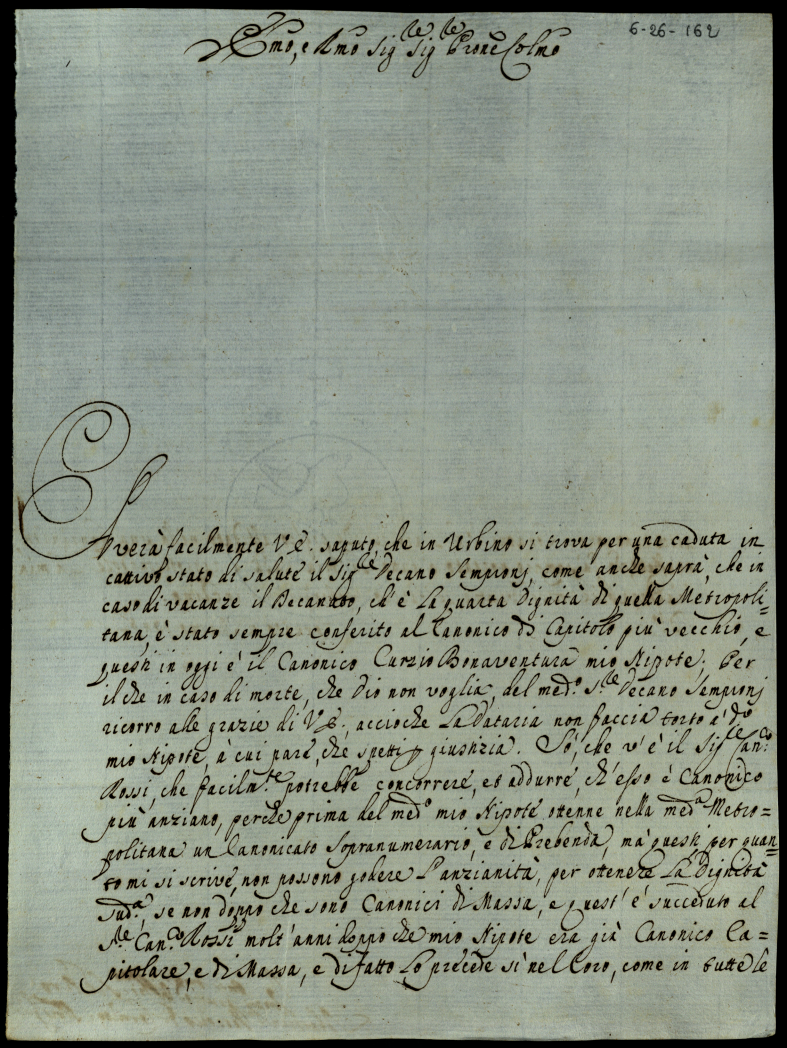 6-26-162
Emo, e Rmo Sigle Sigle Prone Colmo
Averà facilmente V.E. saputo, che in Urbino si trova per una caduta in
cattivo stato di salute il Sigle Decano Sempronj, come anche saprà, che in
caso di vacanze il Decanato, ch'è La quarta Dignità di quella Metropoli=
tana, è stato sempre conferito al Canonico di Capitolo più vecchio, e
questi in oggi è il Canonico Curzio Bonaventura mio Nipote; Per
il che in caso di morte, che Dio non voglia, del medo Sle Decano Sempronj
ricorro alle grazie di V.E., accioche La Dataria non faccia torto a do
mio Nipote, à cui pare, che spetti p giustizia. Sò, che v'è il Sigle Canco
Rossi, che facilmte potrebbe concorrere, et addurre, ch'esso è Canonico
più anziano, perche prima del medo mio Nipote ottenne nella meda Metro=
politana un Canonicato Sopranumerario, e di Prebenda, mà questi per quan=
to mi si scrive, non possono godere L'anzianità, per ottenere La Dignità
suda, se non doppo che sono Canonici di Massa, e quest'è succeduto al
Sle Canco Rossi molt'anni doppo che mio Nipote era già Canonico Ca=
pitolare, e di Massa, e di fatto Lo precede sì nel Coro, come in tutte le